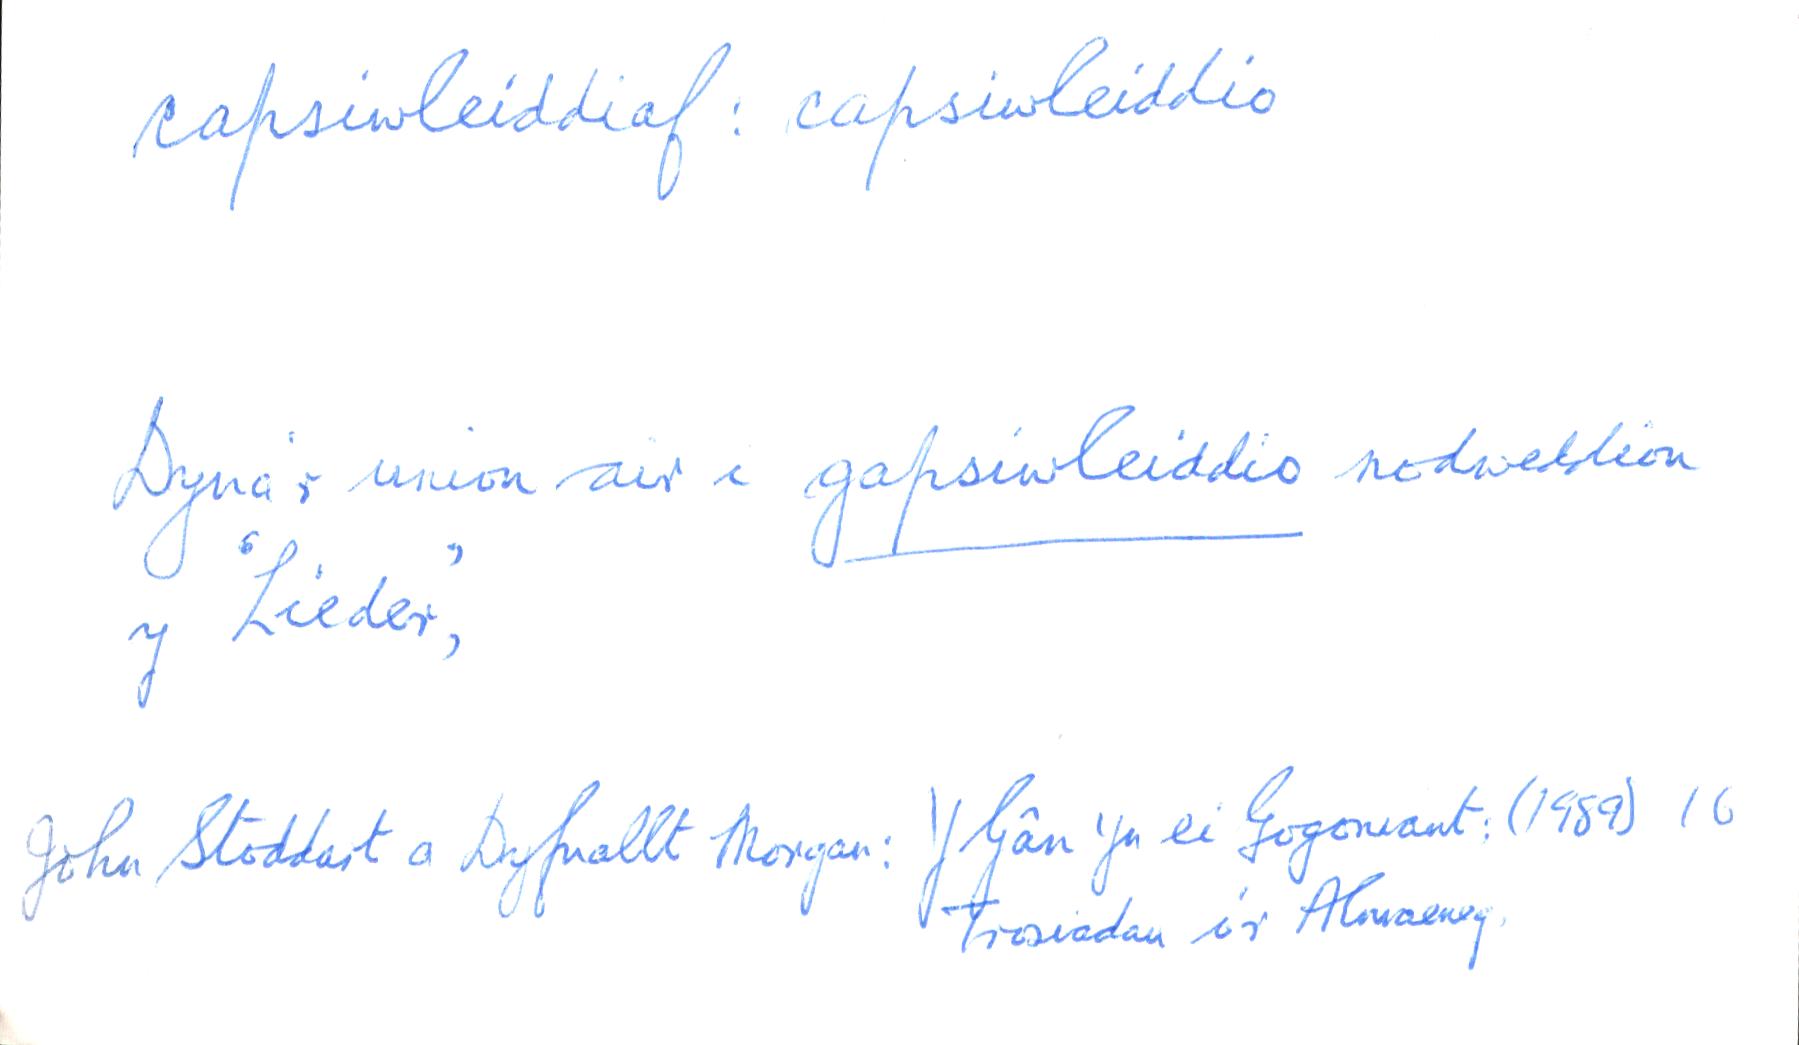 capsiwleiddiaf: capsiwleiddio
Dyna'r union air i gapsiwleiddio nodweddion
y 'Lieder',
John Stoddart a Dyfnallt Morgan: Y Gân yn ei Gogoniant: (1989) 16
Trosiadau o'r Almaeneg.